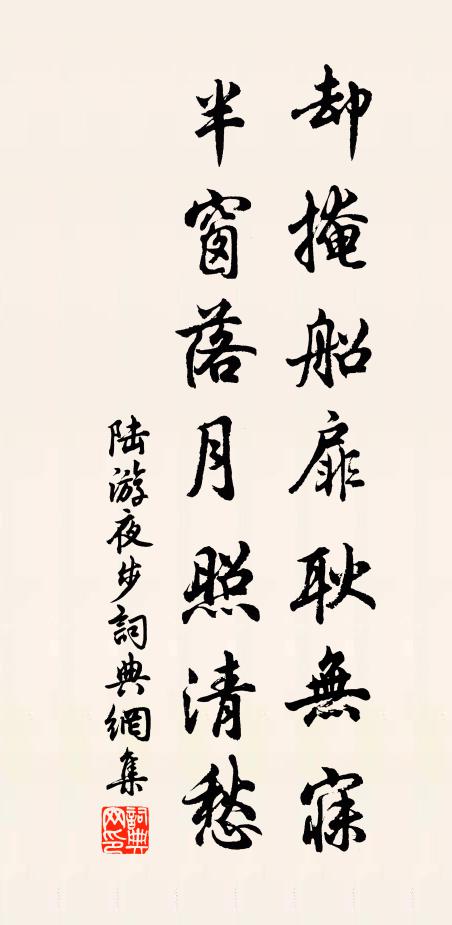 却掩船扉耿無寐
半窗落月照清愁
陆游夜步詞典網集
詞典网印